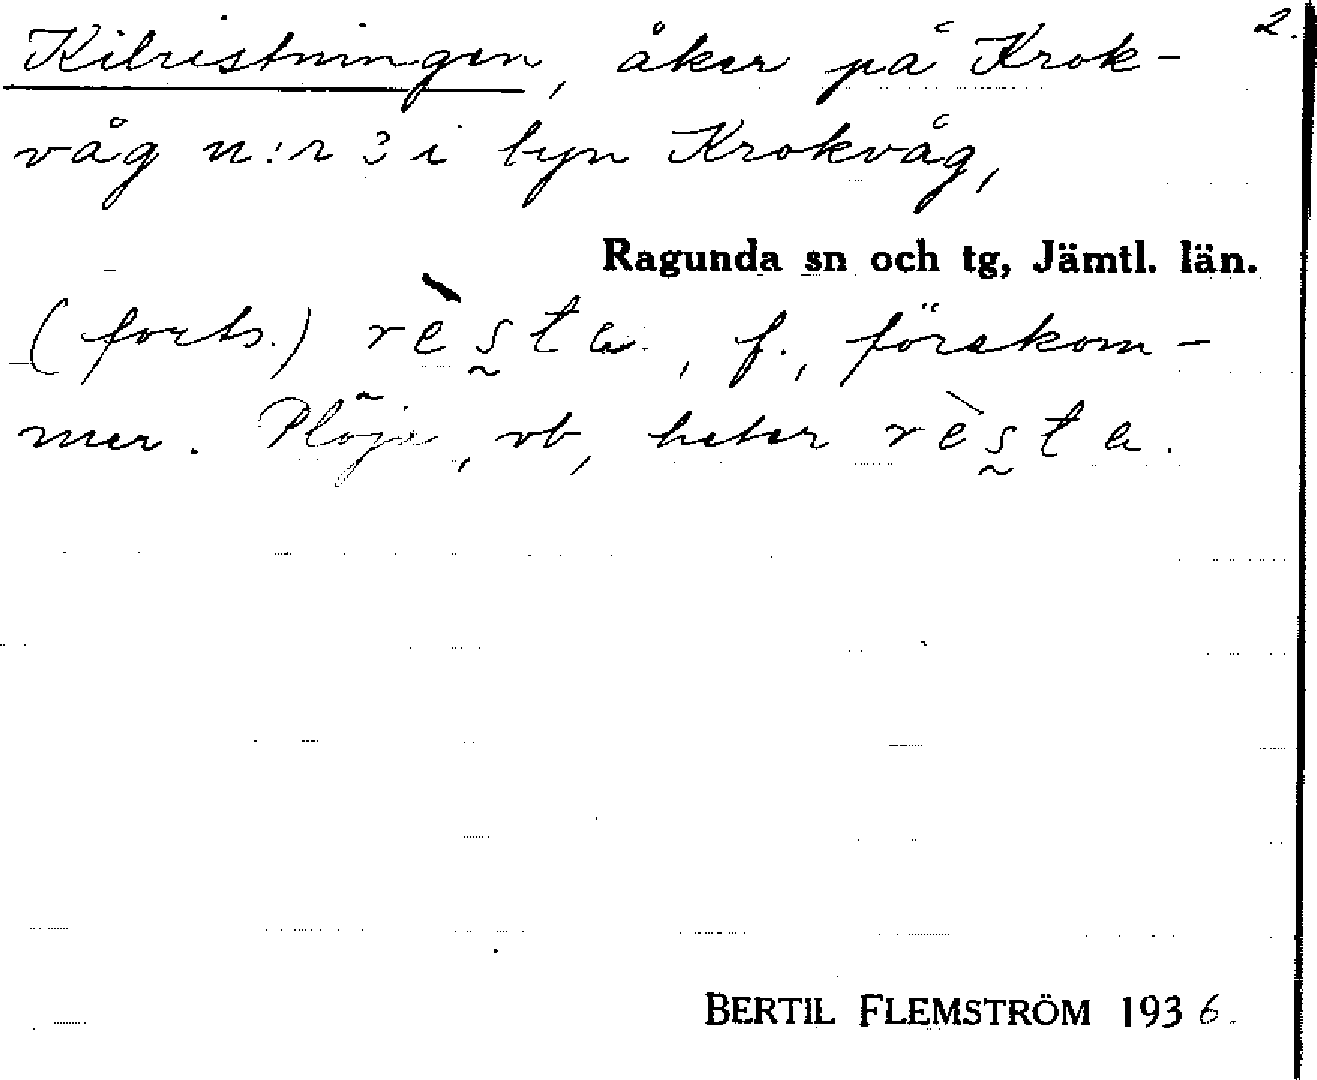 2.
Kilristningen, åker på Krok-
våg n:r 3 i byn Krokvåg,
Ragunda sn och tg, Jämtl. län.
(forts.) rès̰ta, f., förekom-
mer. Plöja, vb, heter rès̰ta.
BERTIL FLEMSTRÖM 1936.